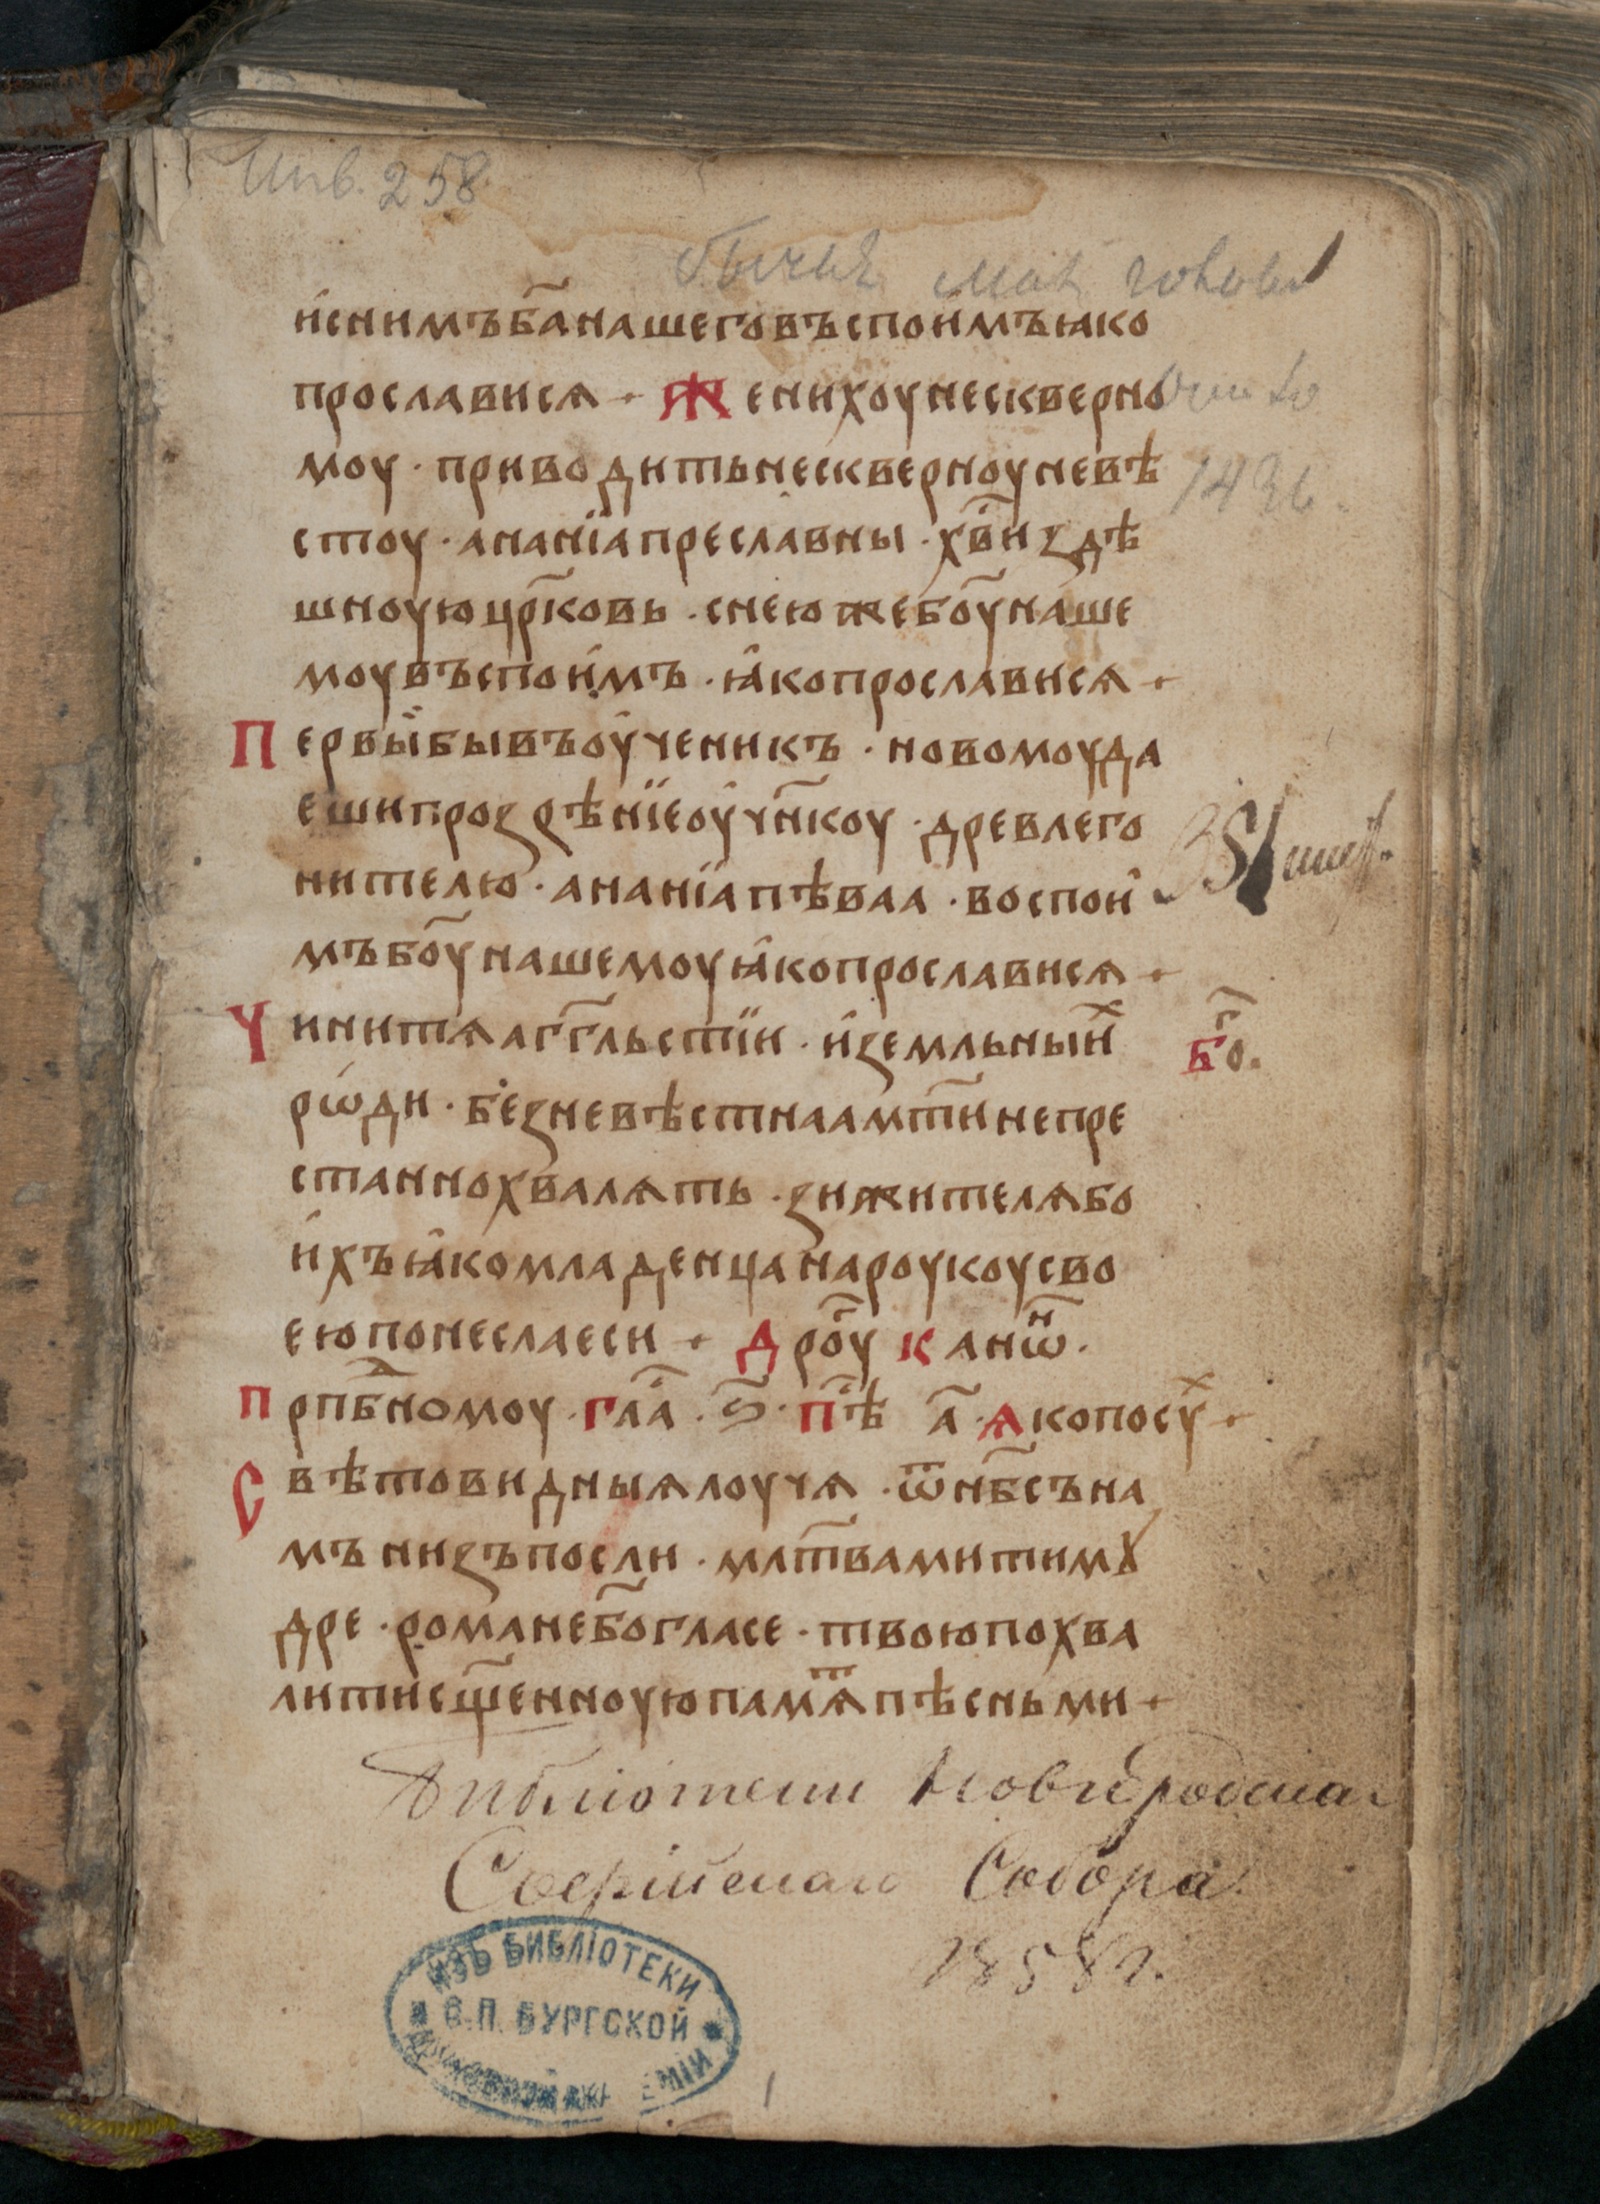 Инв. 258
и҆снимъб҃анашеговъспои҆мъꙗко
прославися + Женихоунескверно
моу · приводитьнесквернуневѣ
стоу · ананїапреславныи · хв҃издѣ
шноуюцр҃ковь · снеюжебо҃унаше
моувъспои҆мъ · ꙗ҆копрославися +
Первы́бывъоу҆ченикъ · новомоуда
ешипрозрѣнїеоу҆чн҃коу · древлего
нителю · ананїапѣваа · воспои҆
мъбо҃унашемоуꙗ҆копрославися +
Чинитяаг҃гльстїи · и҆земльныих
рѡди · безневѣстнаамт҃инепре
станнохвалять · зижителябо
и҆хъꙗ҆комладенцанароукоусво
еюпонеслаеси + Дро҃у канѡ҃н ·
бо҃г.
прпбⷣномоу · гла҃ · ѕ҃ · пѣ҃ а҃ · якопосуⷯ +
Свѣтовидныялоучя · ѿнб҃съна
мъ низъпосли · млт҃вамитимꙋ
дре · романебо҃гласе · твоюпохва
литисщ҃енноуюпамяⷮпѣсньми +
Библіотеки Новгородскаго
Софійскаго Собора
1858 г.
ИЗЪ БИБЛІОТЕКИ
С.П. БУРГСКОЙ
ДУХОВНОЙ АКАДЕМІИ
1